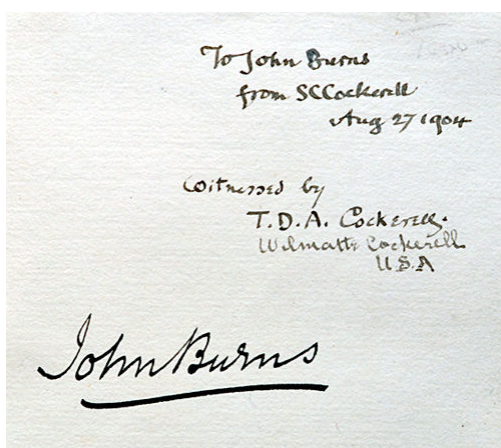 To John Burns
from SCCockerell
Aug 27 1904
Witnessed by
T.D.A. Cockerell.
Wilmatte Cockerell
USA
John Burns